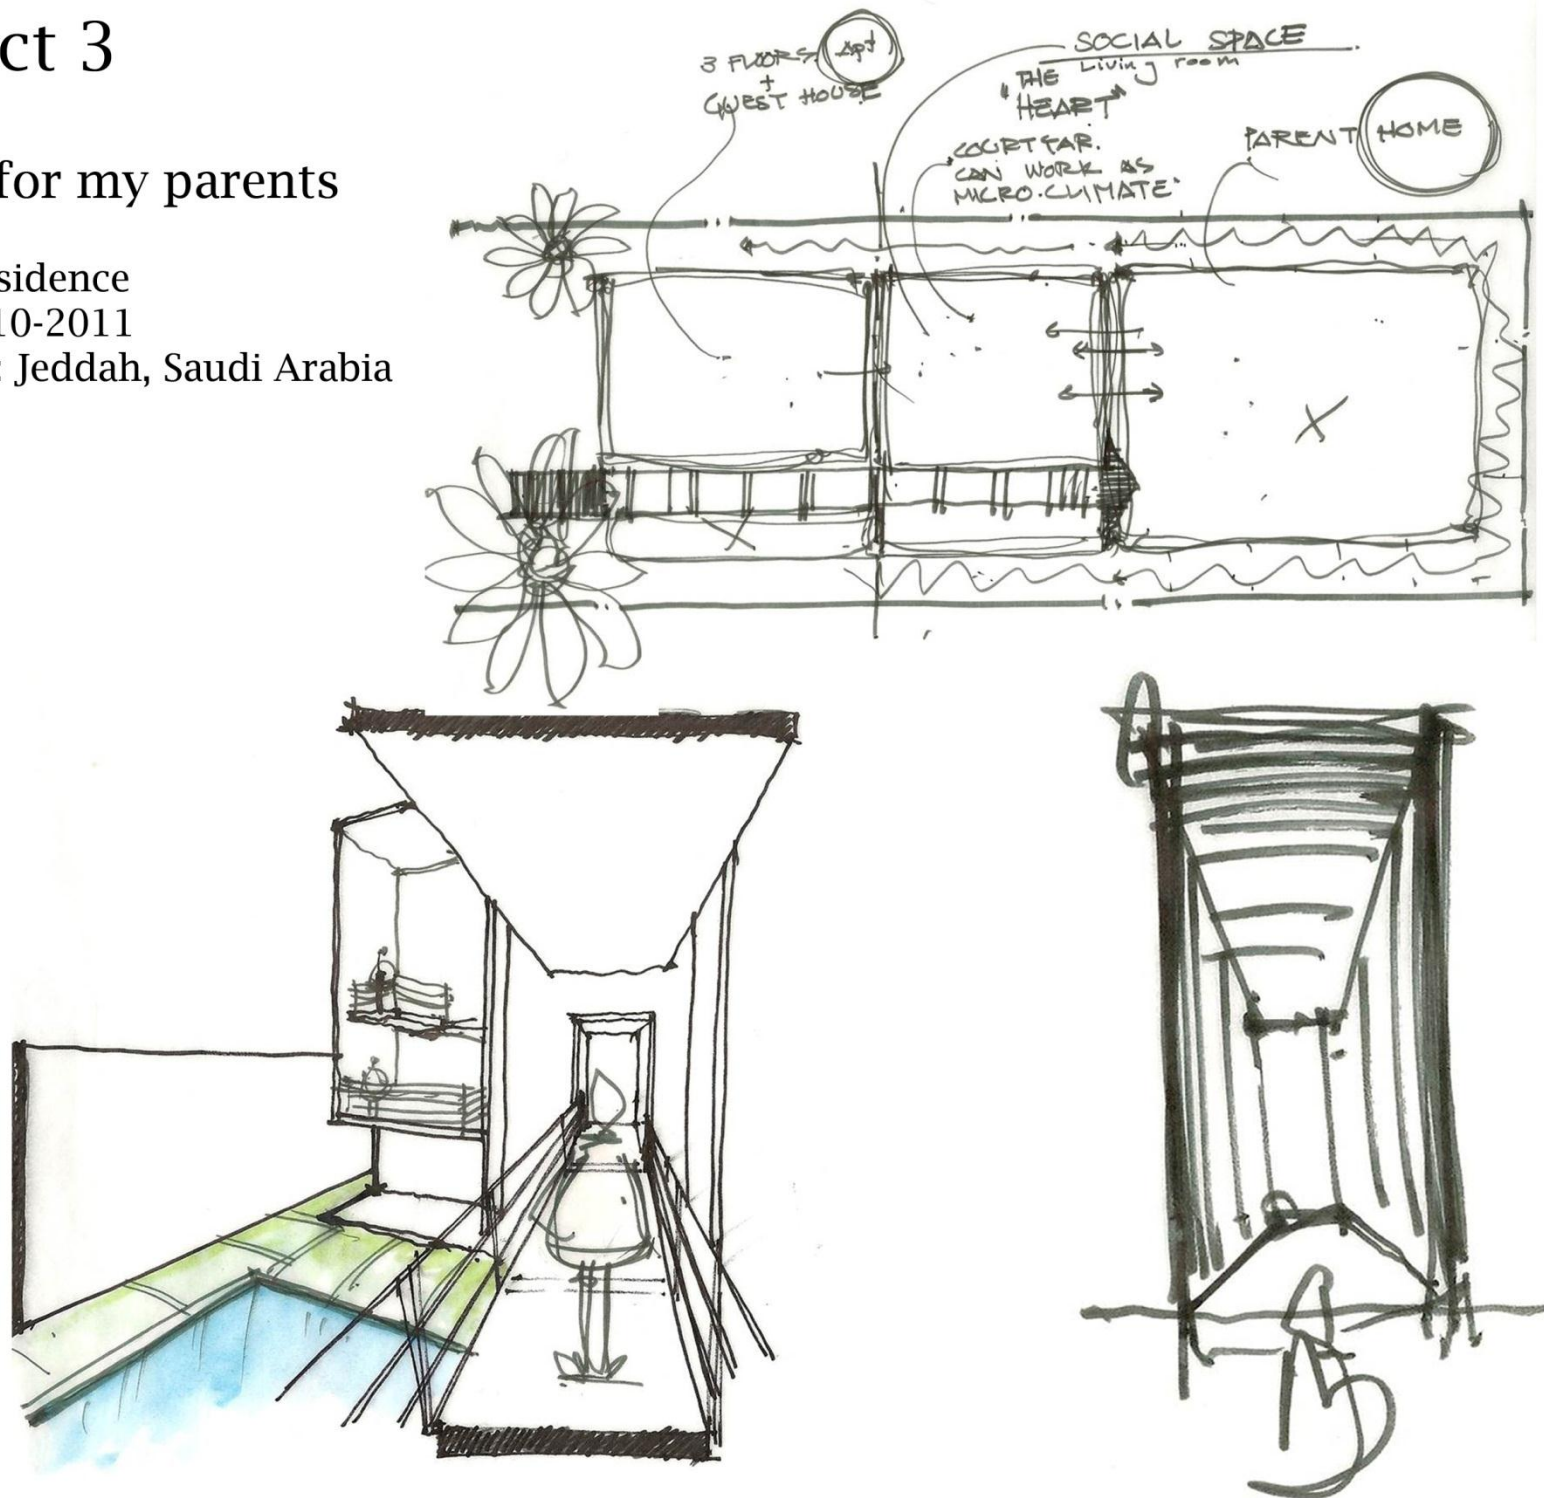 ct 3
for my parents
sidence
10-2011
: Jeddah, Saudi Arabia
3 FLOORS Apt
+
GUEST HOUSE
SOCIAL SPACE
Living room
"THE
HEART"
COURTYAR.
CAN WORK AS
MICRO-CLIMATE
PARENT HOME